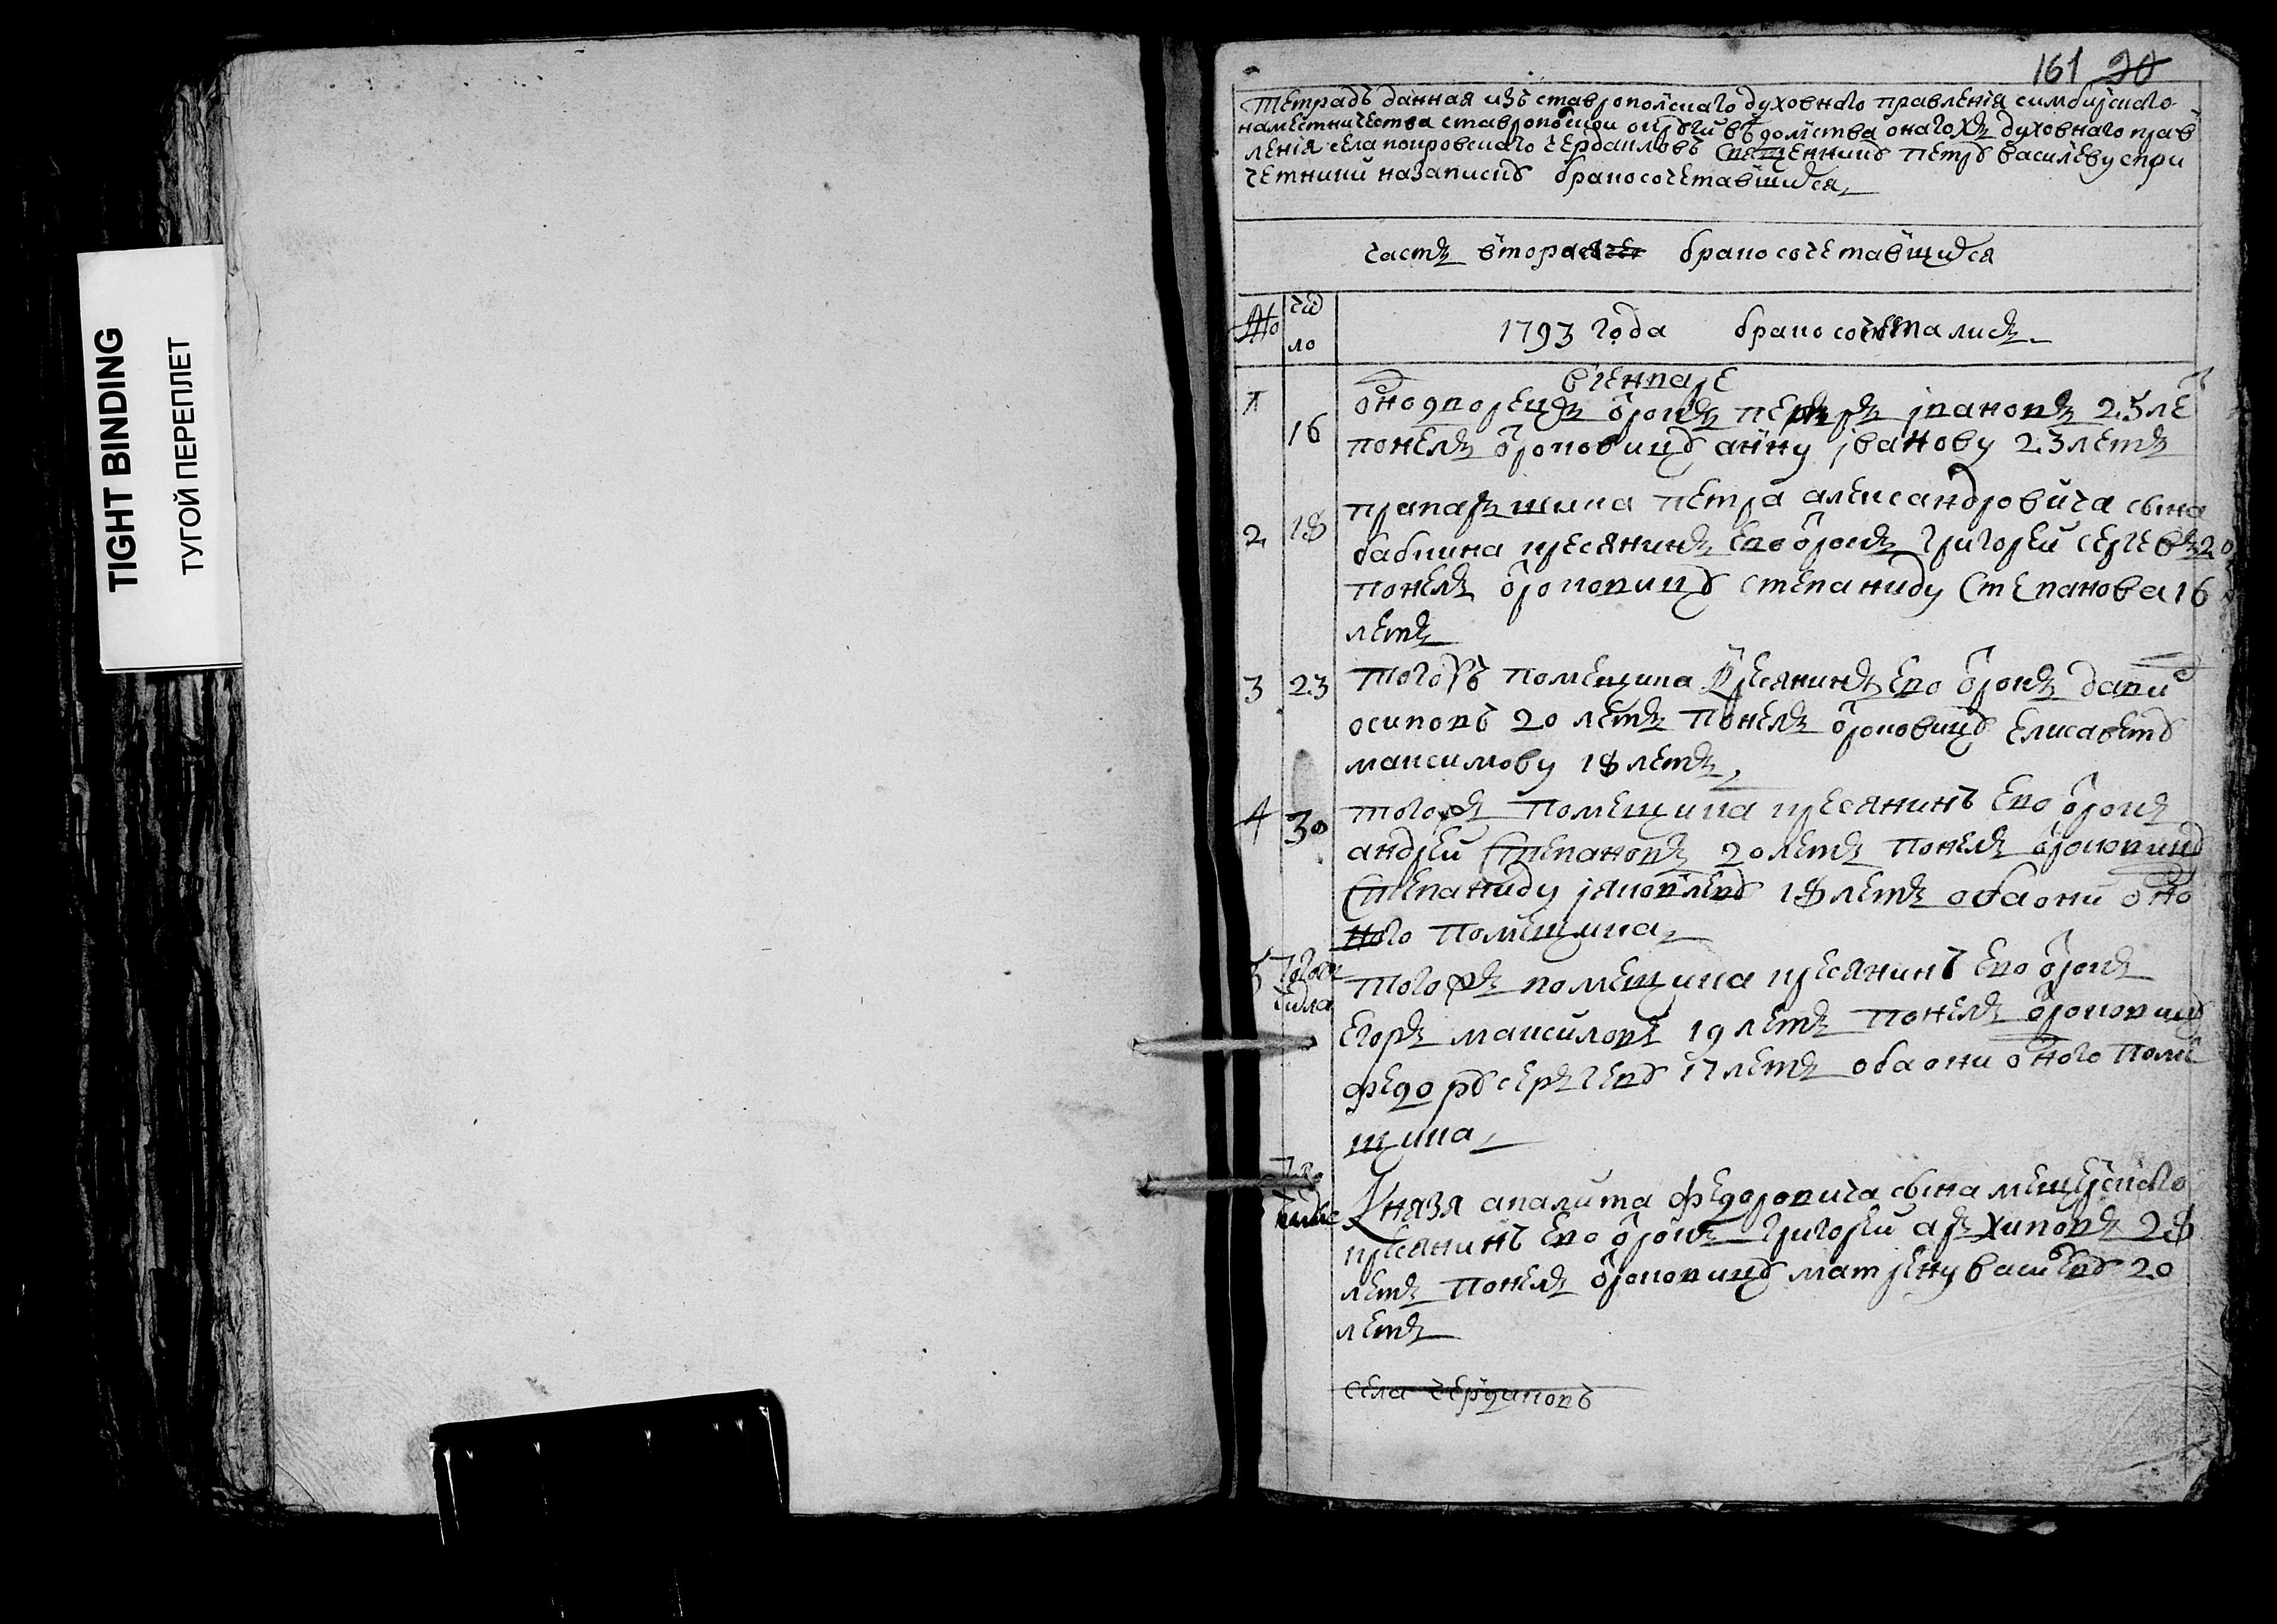 TIGHT BINDING
ТУГОЙ ПЕРЕПЛЕТ
161 20
Тетрадь данная изъ ставропольскаго духовнаго правленiя симбирскаго
наместничества ставропольской округи ведомства онагожъ духовнаго прав
ленiя села покровскаго чердаковъ священнику петру василеву спри
четники назаписку бракосочетавшихся
часть вторая бракосочетавшихся
№ число
1793 года бракосочетались
вгенваре
1 16 однодворецъ отрокъ iвановъ 25 ле
понелъ отроковицу анну iванову 23 летъ
2 18 прапаръщика петра александровича сына
бабкина кресянинъ ево отрокъ григореи сергевъ 20
понелъ отроковицу степаниду степанова 16
летъ
3 23 тогожъ помещика кресянинъ ево отрокъ давид
осиповъ 20 летъ понелъ отроковицу елисавету
максимову 18 летъ
4 30 тогожъ помещика кресянинъ ево отрокъ
андреи степановъ 20 летъ понелъ отроковицу
степаниду iяковлеву 18 летъ оба они одно
ного помещика
5 того
числа
тогожъ помещика кресянинъ ево отрокъ
егоръ максимовъ 19 летъ понелъ отроковицу
федору серъгеву 17 летъ оба они одного поме
щика
Князя аполита федоровича сына мещерскаго
кресянинъ ево отрокъ григореи аръхиповъ 28
летъ понелъ отроковицу матрену василеву 20
летъ
села чердаковъ